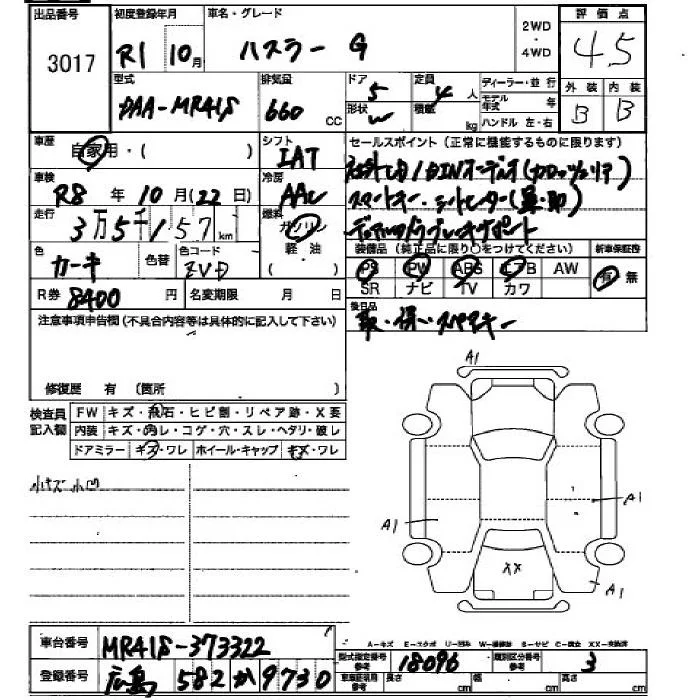 出品番号 初度登録年月 車名・グレード 2WD ・ 4WD 評価点
3017 R1 10月 ハスラー G 4.5
型式 排気量 ドア 定員 ディーラー・並行 外装 内装
DAA-MR41S 660 CC 5 4人 モデル年式 年 B B
形状 W 積載 kg ハンドル 左・右
車歴 自家用・( ) シフト IAT セールスポイント(正常に機能するものに限ります)
車検 R8年10月(22日) 冷房 AAC
スマートキー・シートヒーター
走行 3万5千157km 燃料 ガソリン
デュアルカメラブレーキサポート
色 カーキ 色替 色コード ZVD 軽・油 ( )
装備品(純正品に限り○をつけてください) 新車保証書
PS PW ABS エアB AW 有・無
SR ナビ TV カワ
R券 8400円 名変期限 月 日 後日品
取・保・スペアキー
注意事項申告欄(不具合内容等は具体的に記入して下さい)
修復歴 有 (箇所 )
検査員記入欄 FW キズ・飛石・ヒビ割・リペア跡・X要
内装 キズ・汚レ・コゲ・穴・スレ・ヘタリ・破レ
ドアミラー キズ・ワレ ホイール・キャップ キズ・ワレ
小キズ 小凹
A1
A1
A1
XX
A1
A-キズ E-エクボ U-凹み W-補修跡 S-サビ C-腐食 XX-交換済
車台番号 MR41S-373322
型式指定番号 参考 18096 類別区分番号 参考 3
登録番号 広島 582 か 9730
車庫証明用 参考 長さ cm 幅 cm 高さ cm